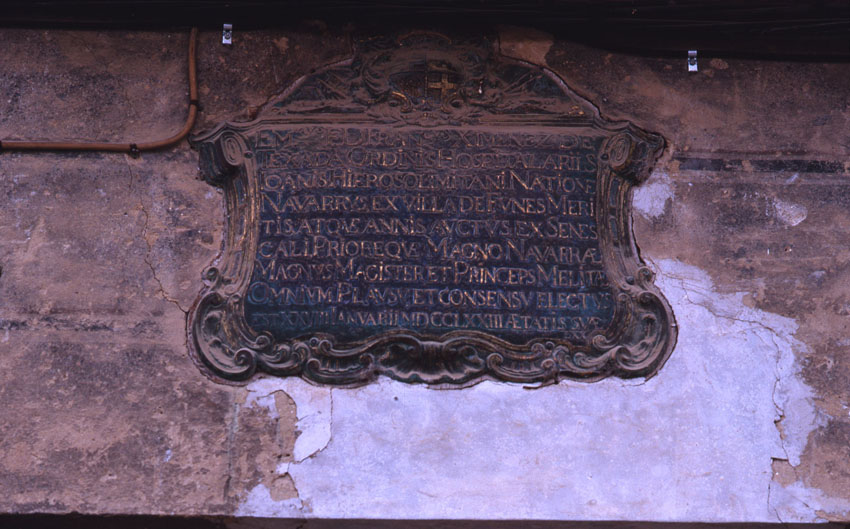 DE
TEXADA ORDINIS HOSPITALARII S
IOANIS HIEROSOLIMITANI NATIONE
NAVARRVS EX VILLA DE FVNES MERI
TIS ATQVE ANNIS AVCTVS EX SENES
CALI PRIOREQVE MAGNO NAVARRÆ
MAGNVS MAGISTER ET PRINCEPS MELITÆ
OMNIVM PLAVSV ET CONSENSV ELECTVS
IANVARII MDCCLXXIII ÆTATIS SVÆ